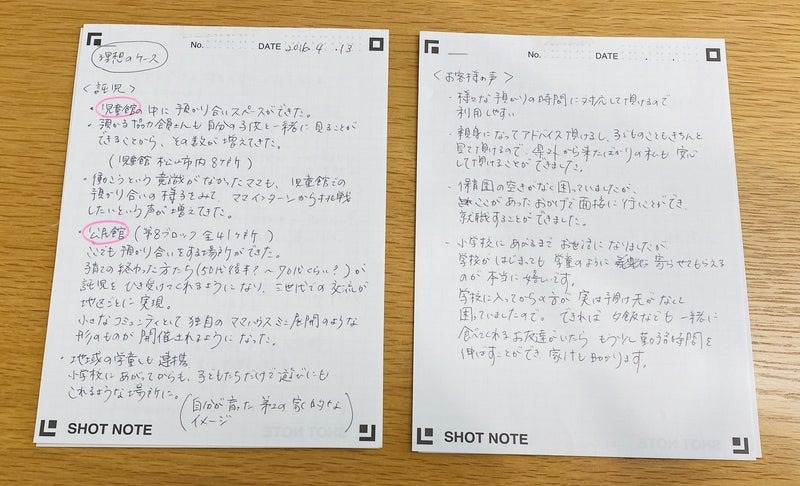 理想のケース
No. DATE 2016.4.13
<託児>
・児童館の中に預かり合いスペースができた。
・預かる協力会員さんも自分の子供と一緒に見ることが
できることから、その数が増えてきた。
(児童館 松山市内 8ヶ所)
・働こうという意識がなかったママも、児童館での
預かり合いの様子をみて、ママインターンから挑戦
したいという声が増えてきた。
・公民館 (第8ブロック 全41ヶ所)
ここでも預かり合いをする場所ができた。
子育ての終わった方たち(50代後半?〜70代くらい?)が
託児をひき受けてくれるようになり、三世代での交流が
地区ごとに実現。
小さなコミュニティとして独自のママハウスミニ展開のような
形のものが開催されるようになった。
・地域の学童も連携
小学校にあがってからも、子どもたちだけで遊びにも
これるような場所に。
(自分が育った第2の家的な
イメージ)
SHOT NOTE
No. DATE . .
<お客様の声>
・様々な預かりの時間に対応して頂けるので
利用しやすい
・親身になってアドバイス頂けるし、子どものこともきちんと
見て頂けるので、県外から来たばかりの私も安心
して頂けることができました。
・保育園の空きがなく困っていましたが、
ここがあったおかげで面接に行くことができ、
就職することができました。
・小学校にあがるまでお世話になりましたが
学校がはじまっても学童のように寄らせてもらえる
のが本当に嬉しいです。
学校に入ってからの方が実は預け先がなくて
困っていましたので。できれば夕飯なども一緒に
食べてくれるお友達がいたらもう少し葉のう時間を
伸ばすことができ家けも助かります。
SHOT NOTE